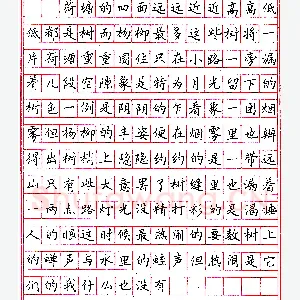 荷塘的四面远远近近高高低
低都是树而杨柳最多这些树将一
片荷塘重重围住只在小路一旁漏
着几段空隙像是特为月光留下的
树色一例是阴阴的乍看象一团烟
雾但杨柳的丰姿便在烟雾里也辨
得出树梢上隐隐约约的是一带远
山只有些大意罢了树缝里也漏着
一两点路灯光没精打彩的是渴睡
人的眼这时候最热闹的要数树上
的蝉声与水里的蛙声但热闹是它
们的我什么也没有